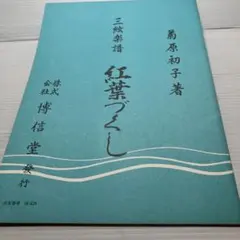 菊原初子著
三絃楽譜
紅葉づくし
株式会社 博信堂 発行